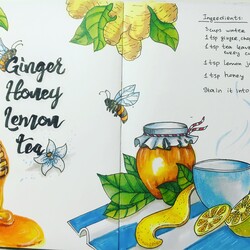 Ginger
Honey
Lemon
tea
Ingredients:
3 cups water
1 tsp ginger, cho
1 tsp tea leave
1 tsp lemon j
1 tsp honey
into